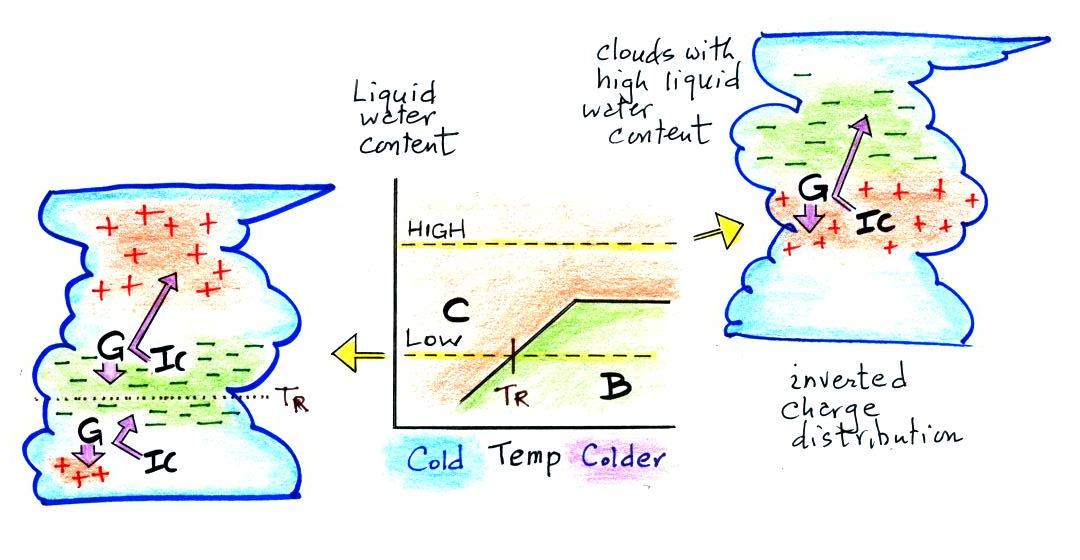 clouds with
high liquid
water
content
Liquid
water
content
HIGH
C
LOW
TR
B
Cold Temp Colder
G
IC
TR
G
IC
G
IC
inverted
charge
distribution